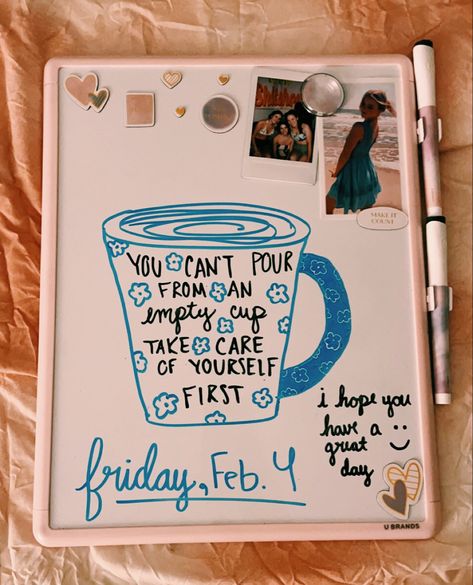 MAKE IT
COUNT
YOU CAN'T POUR
FROM AN
empty cup
TAKE CARE
OF YOURSELF
FIRST
i hope you
have a
great
day
friday, Feb. 4
U BRANDS